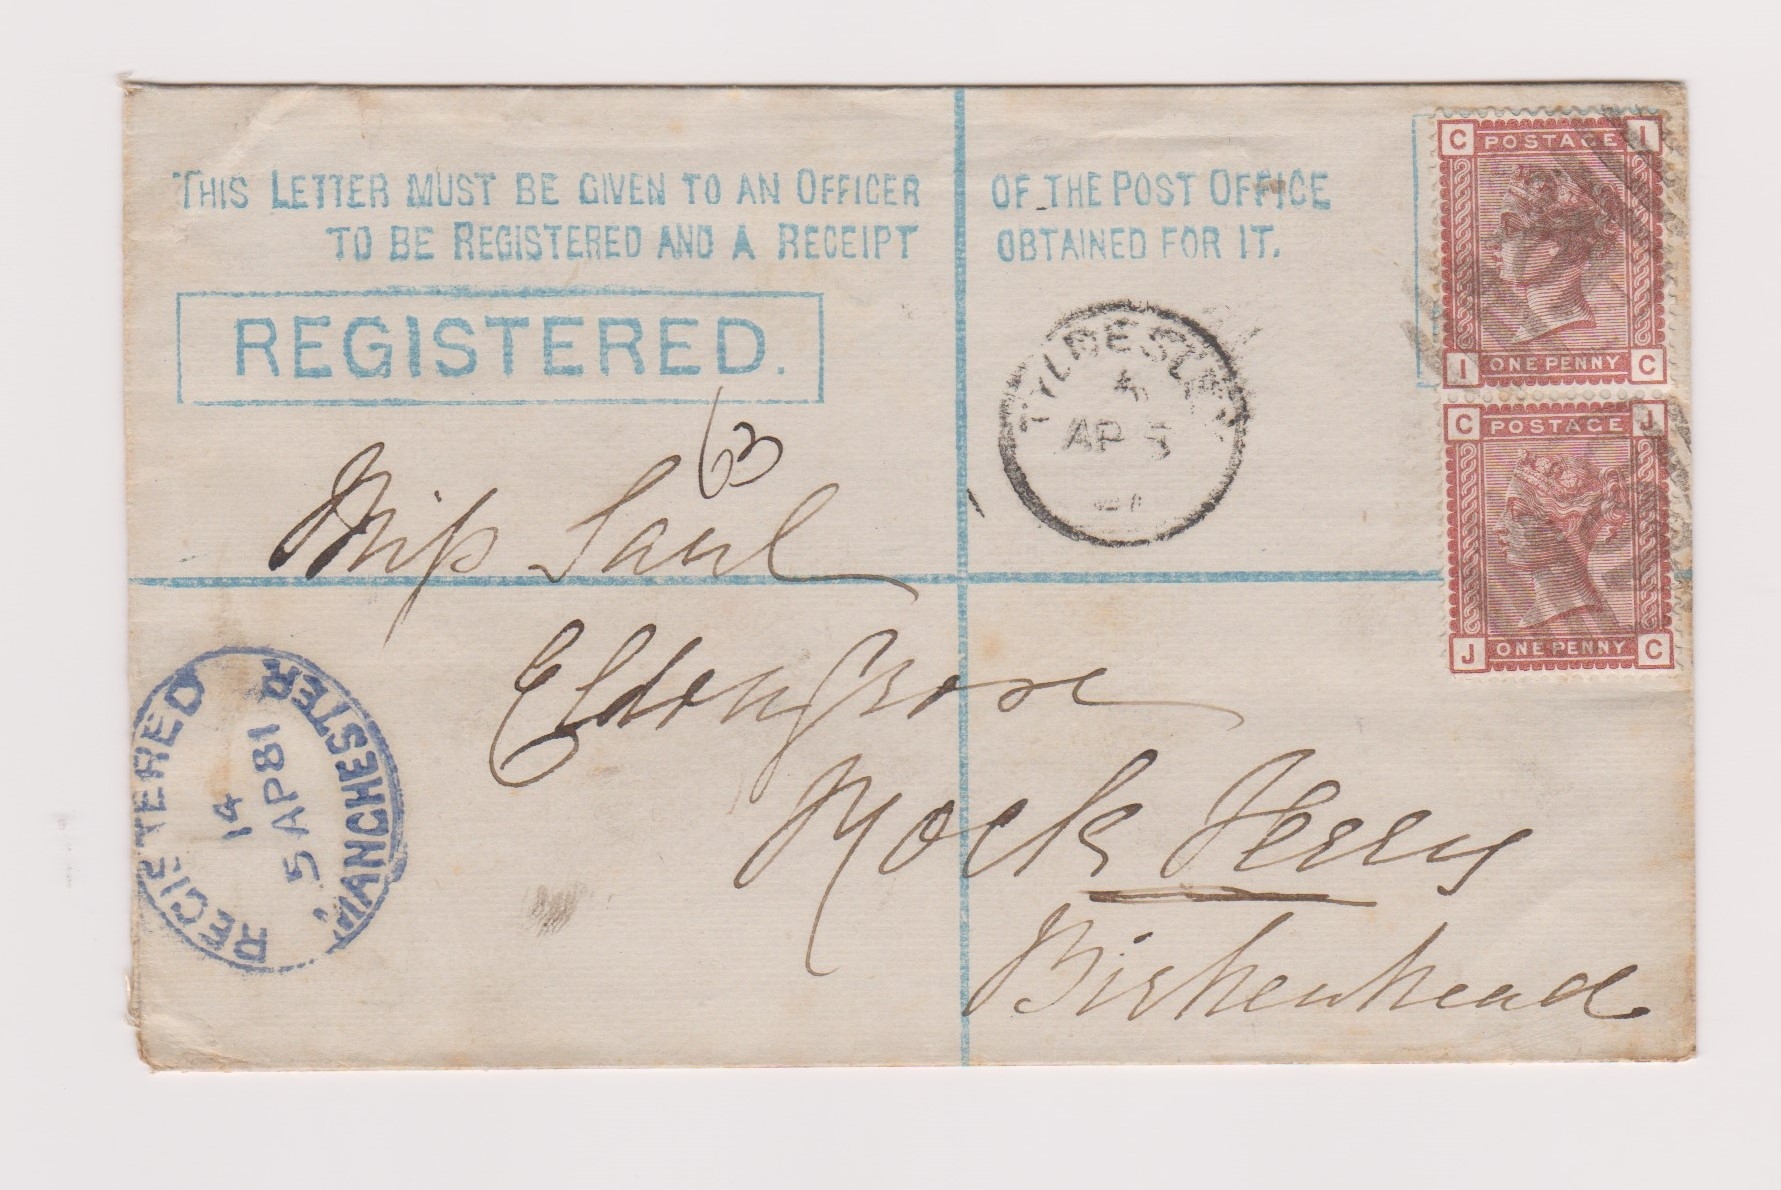 THIS LETTER MUST BE GIVEN TO AN OFFICER OF THE POST OFFICE
TO BE REGISTERED AND A RECEIPT OBTAINED FOR IT.
REGISTERED.
C POSTAGE I
I ONE PENNY C
C POSTAGE J
J ONE PENNY C
TYLDESLEY
AP 5
63
Miss Saul
Eldon Grove
Rock Ferry
Birkenhead
REGISTERED
14
5 AP 81
MANCHESTER